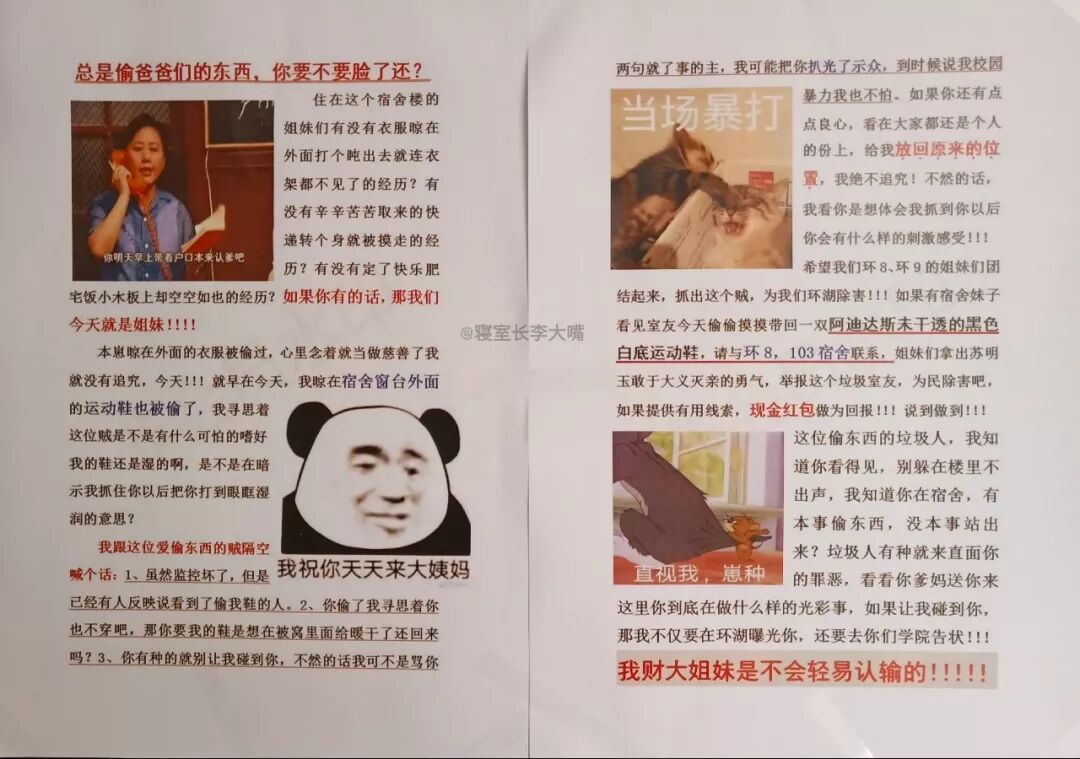 总是偷爸爸们的东西，你要不要脸了还？
住在这个宿舍楼的
姐妹们有没有衣服晾在
外面打个盹出去就连衣
架都不见了的经历？有
没有辛辛苦苦取来的快
递转个身就被摸走的经
历？有没有定了快乐肥
宅饭小木板上却空空如也的经历？如果你有的话，那我们
今天就是姐妹！！！！
你明天早上带着户口本来认爹吧
本崽晾在外面的衣服被偷过，心里念着就当做慈善了我
就没有追究，今天！！！就早在今天，我晾在宿舍窗台外面
的运动鞋也被偷了，我寻思着
这位贼是不是有什么可怕的嗜好
我的鞋还是湿的啊，是不是在暗
示我抓住你以后把你打到眼眶湿
润的意思？
我祝你天天来大姨妈
我跟这位爱偷东西的贼隔空
喊个话：1、虽然监控坏了，但是
已经有人反映说看到了偷我鞋的人。2、你偷了我寻思着你
也不穿吧，那你要我的鞋是想在被窝里面给暖干了还回来
吗？3、你有种的就别让我碰到你，不然的话我可不是骂你
两句就了事的主，我可能把你扒光了示众，到时候说我校园
暴力我也不怕。如果你还有点
点良心，看在大家都还是个人
的份上，给我放回原来的位
置，我绝不追究！不然的话，
我看你是想体会我抓到你以后
你会有什么样的刺激感受！！！
当场暴打
希望我们环8、环9的姐妹们团
结起来，抓出这个贼，为我们环湖除害！！！如果有宿舍妹子
看见室友今天偷偷摸摸带回一双阿迪达斯未干透的黑色
白底运动鞋，请与环8，103宿舍联系，姐妹们拿出苏明
玉敢于大义灭亲的勇气，举报这个垃圾室友，为民除害吧，
如果提供有用线索，现金红包做为回报！！！说到做到！！！
这位偷东西的垃圾人，我知
道你看得见，别躲在楼里不
出声，我知道你在宿舍，有
本事偷东西，没本事站出
来？垃圾人有种就来直面你
的罪恶，看看你爹妈送你来
直视我，崽种
这里你到底在做什么样的光彩事，如果让我碰到你，
那我不仅要在环湖曝光你，还要去你们学院告状！！！
我财大姐妹是不会轻易认输的！！！！！
@寝室长李大嘴